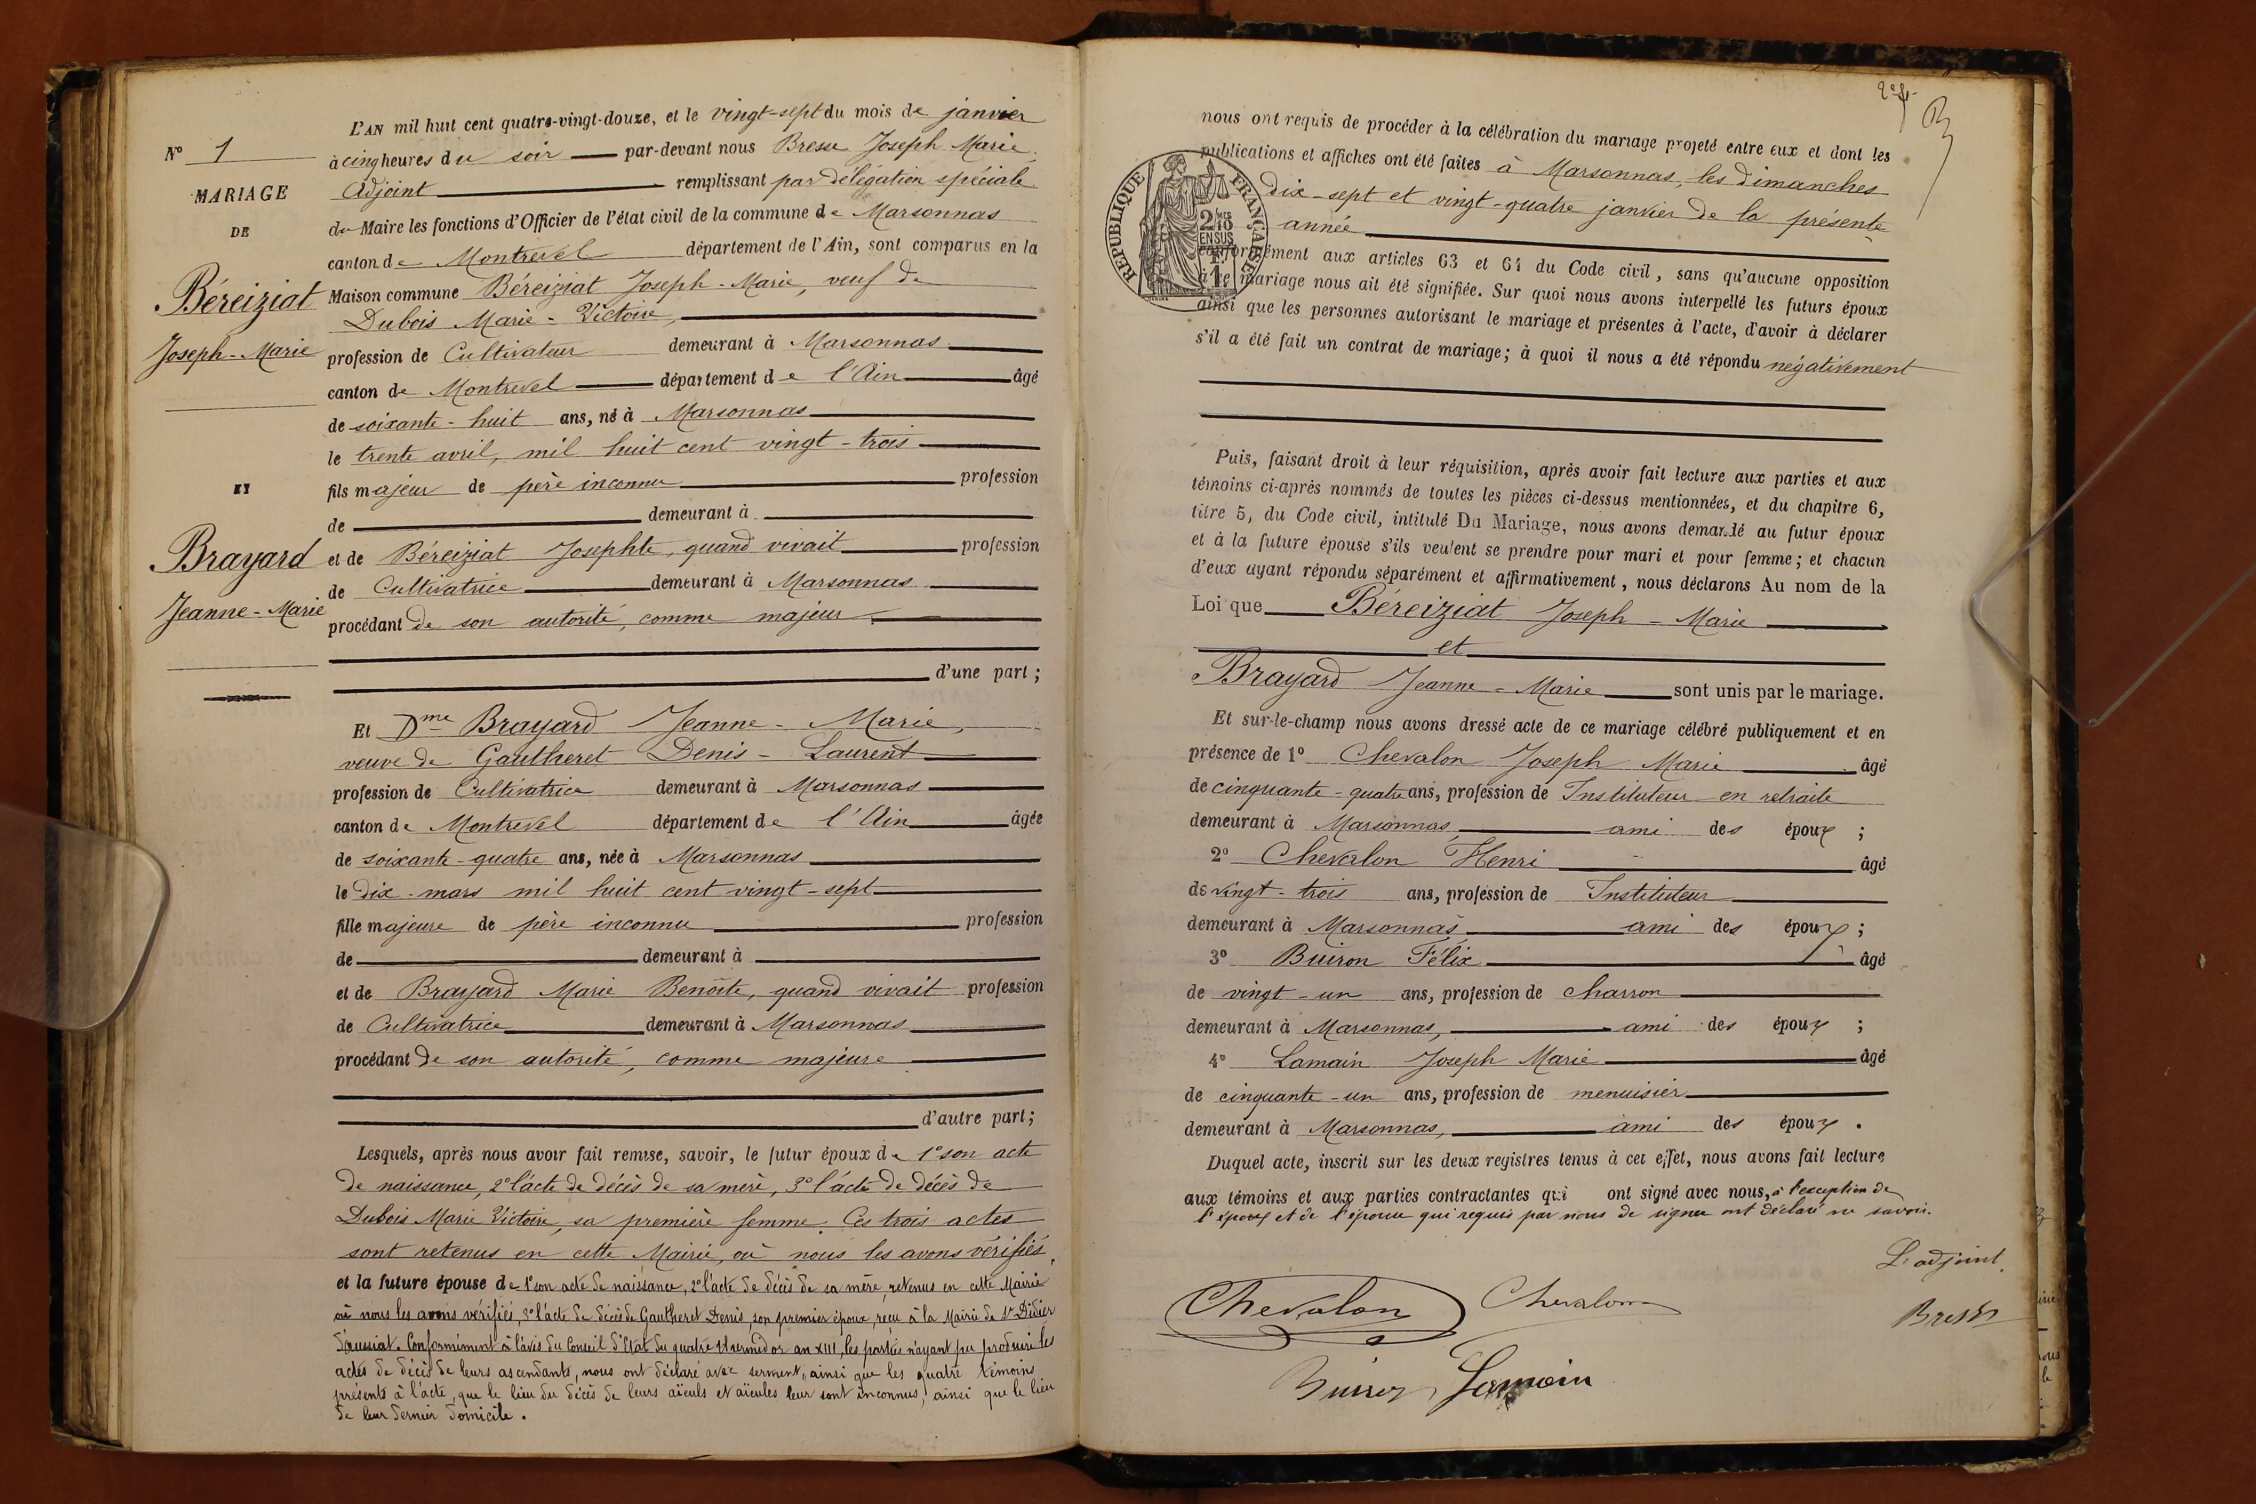 N° 1
MARIAGE
DE
Béreiziat
Joseph-Marie
ET
Brayard
Jeanne-Marie
L'AN mil huit cent quatre-vingt-douze, et le vingt-sept du mois de janvier
à cinq heures du soir par-devant nous Bresse Joseph Marie
Adjoint remplissant par délégation spéciale
du Maire les fonctions d'Officier de l'état civil de la commune de Marsonnas
canton de Montrevel département de l'Ain, sont comparus en la
Maison commune Béreiziat Joseph-Marie, veuf de
Dubois Marie-Victoire,
profession de Cultivateur demeurant à Marsonnas
canton de Montrevel département de l'Ain âgé
de soixante-huit ans, né à Marsonnas
le trente avril, mil huit cent vingt-trois
fils majeur de père inconnu profession
de demeurant à
et de Béreiziat Josephte, quand vivait profession
de Cultivatrice demeurant à Marsonnas
procédant de son autorité, comme majeur
d'une part ;
Et Dme Brayard Jeanne-Marie,
veuve de Gautheret Denis-Laurent
profession de Cultivatrice demeurant à Marsonnas
canton de Montrevel département de l'Ain âgée
de soixante-quatre ans, née à Marsonnas
le dix-mars mil huit cent vingt-sept
fille majeure de père inconnu profession
de demeurant à
et de Brayard Marie Benoîte, quand vivait profession
de Cultivatrice demeurant à Marsonnas
procédant de son autorité, comme majeure
d'autre part ;
Lesquels, après nous avoir fait remise, savoir, le futur époux de 1° son acte
de naissance, 2° l'acte de décès de sa mère, 3° l'acte de décès de
Dubois Marie Victoire, sa première femme. Ces trois actes
sont retenus en cette Mairie, où nous les avons vérifiés
et la future épouse de 1° son acte de naissance, 2° l'acte de décès de sa mère, retenus en cette Mairie
où nous les avons vérifiés, 3° l'acte de décès de Gautheret Denis son premier époux, reçu à la Mairie de St Didier
d'Aussiat. Conformément à l'avis du Conseil d'Etat du quatre thermidor an XIII, les parties n'ayant pu produire les
actes de décès de leurs ascendants, nous ont déclaré avec serment, ainsi que les quatre témoins
présents à l'acte, que le lieu du décès de leurs aïeuls et aïeules leur sont inconnus, ainsi que le lieu
de leur dernier domicile.
nous ont requis de procéder à la célébration du mariage projeté entre eux et dont les
publications et affiches ont été faites à Marsonnas, les dimanches
dix-sept et vingt-quatre janvier de la présente
année
conformément aux articles 63 et 64 du Code civil, sans qu'aucune opposition
à ce mariage nous ait été signifiée. Sur quoi nous avons interpellé les futurs époux
ainsi que les personnes autorisant le mariage et présentes à l'acte, d'avoir à déclarer
s'il a été fait un contrat de mariage ; à quoi il nous a été répondu négativement
RÉPUBLIQUE FRANÇAISE
Puis, faisant droit à leur réquisition, après avoir fait lecture aux parties et aux
témoins ci-après nommés de toutes les pièces ci-dessus mentionnées, et du chapitre 6,
titre 5, du Code civil, intitulé Du Mariage, nous avons demandé au futur époux
et à la future épouse s'ils veulent se prendre pour mari et pour femme ; et chacun
d'eux ayant répondu séparément et affirmativement, nous déclarons Au nom de la
Loi que Béreiziat Joseph-Marie
et
Brayard Jeanne-Marie sont unis par le mariage.
Et sur-le-champ nous avons dressé acte de ce mariage célébré publiquement et en
présence de 1° Chevalon Joseph Marie âgé
de cinquante-quatre ans, profession de Instituteur en retraite
demeurant à Marsonnas, ami des époux ;
2° Chevalon Henri âgé
de vingt-trois ans, profession de Instituteur
demeurant à Marsonnas ami des époux ;
3° Buiron Félix âgé
de vingt-un ans, profession de charron
demeurant à Marsonnas, ami des époux ;
4° Lamain Joseph Marie âgé
de cinquante-un ans, profession de menuisier
demeurant à Marsonnas, ami des époux.
Duquel acte, inscrit sur les deux registres tenus à cet effet, nous avons fait lecture
aux témoins et aux parties contractantes qui ont signé avec nous, à l'exception de
l'époux et de l'épouse qui requis par nous de signer ont déclaré ne savoir.
L'adjoint
Chevalon Chevalon
Bresse
Buiron Lamain